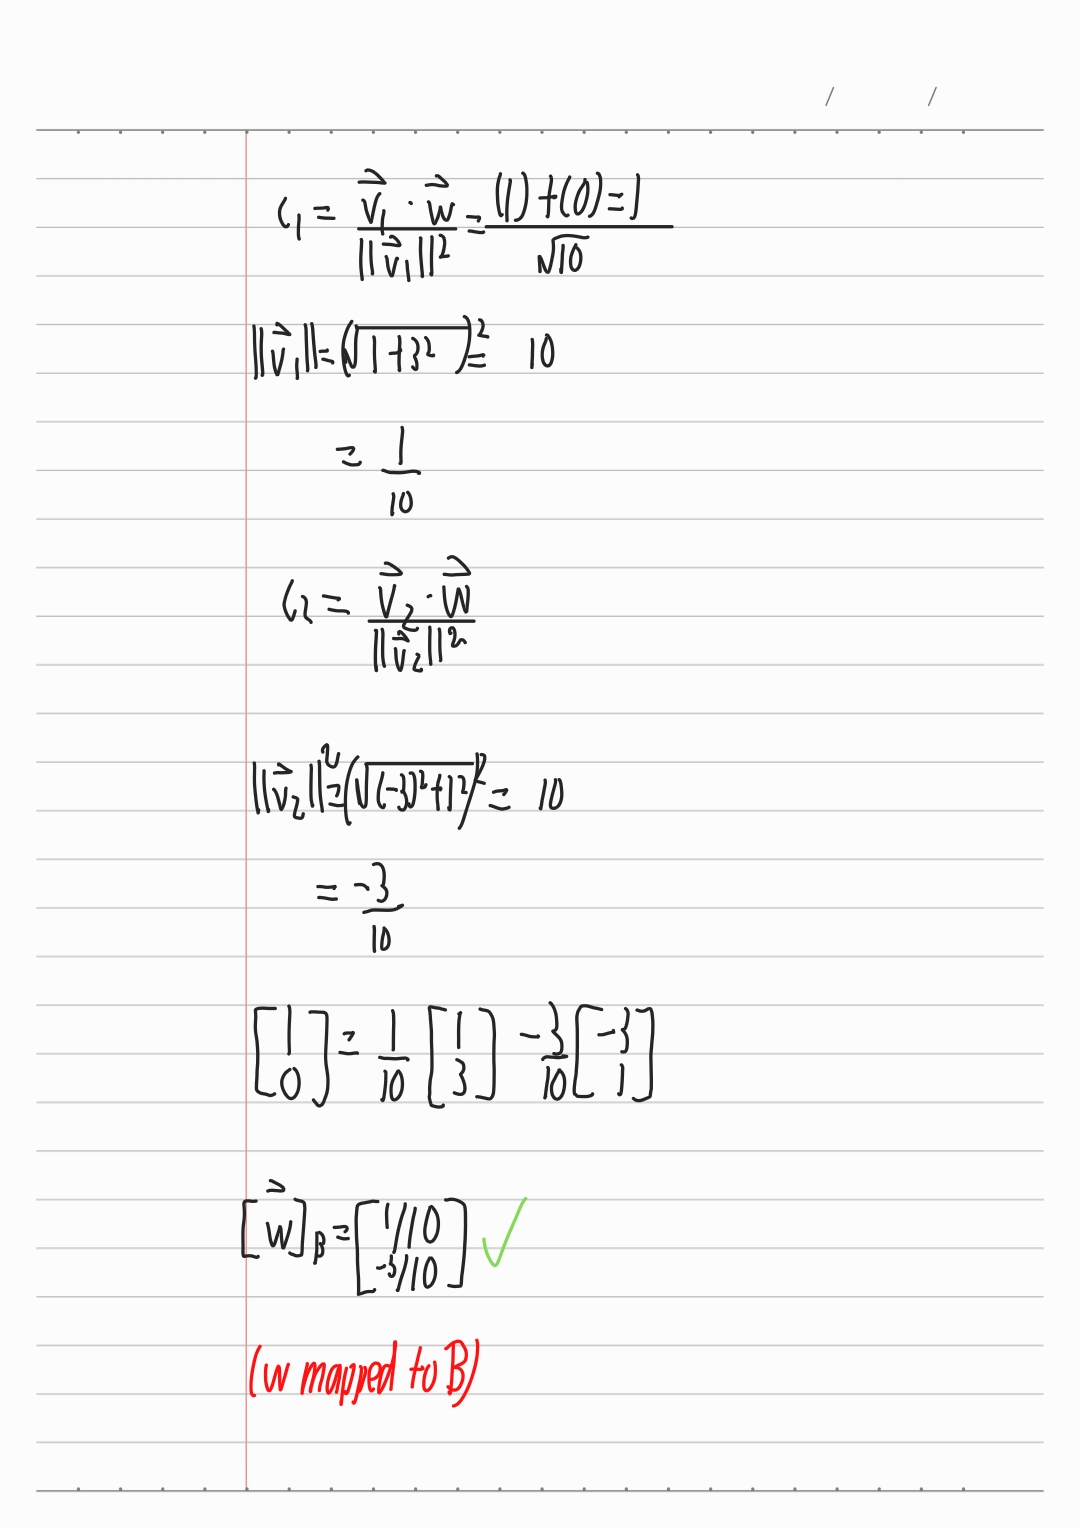 / /
C₁ = (v⃗₁ · w⃗) / ||v⃗₁||² = ((1) + (0) = 1) / √10
||v⃗₁|| = (√(1+3²))² = 10
= 1/10
C₂ = (v⃗₂ · w⃗) / ||v⃗₂||²
||v⃗₂||² = (√((-3)²+1²))² = 10
= -3/10
[1 0] = 1/10 [1 3] -3/10 [-3 1]
[w⃗]_β = [1/10 -3/10] ✓
(w mapped to B)